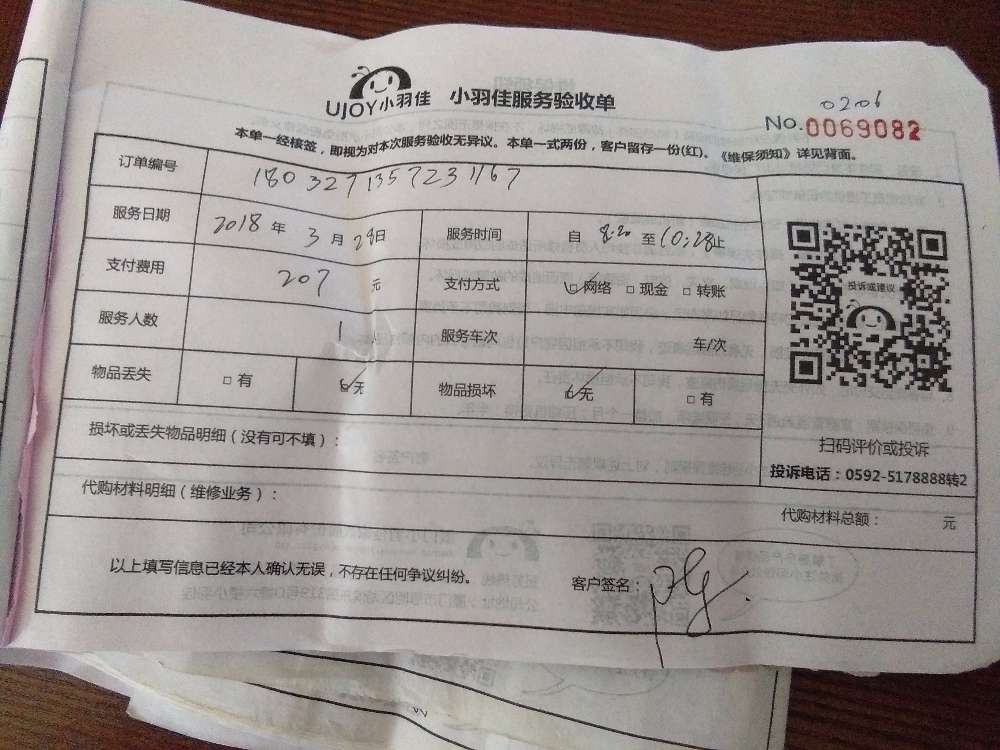 UJOY小羽佳 小羽佳服务验收单
0206
No.0069082
本单一经核签，即视为对本次服务验收无异议。本单一式两份，客户留存一份(红)。《维保须知》详见背面。
订单编号 1803271357231167
服务日期 2018年3月28日 服务时间 自8:20至10:28止
支付费用 207元 支付方式 □网络 □现金 □转账
服务人数 1人 服务车次 车/次
物品丢失 □有 □无 物品损坏 □无 □有
投诉或建议
损坏或丢失物品明细（没有可不填）：
扫码评价或投诉
投诉电话：0592-5178888转2
代购材料明细（维修业务）：
代购材料总额： 元
以上填写信息已经本人确认无误，不存在任何争议纠纷。
客户签名：